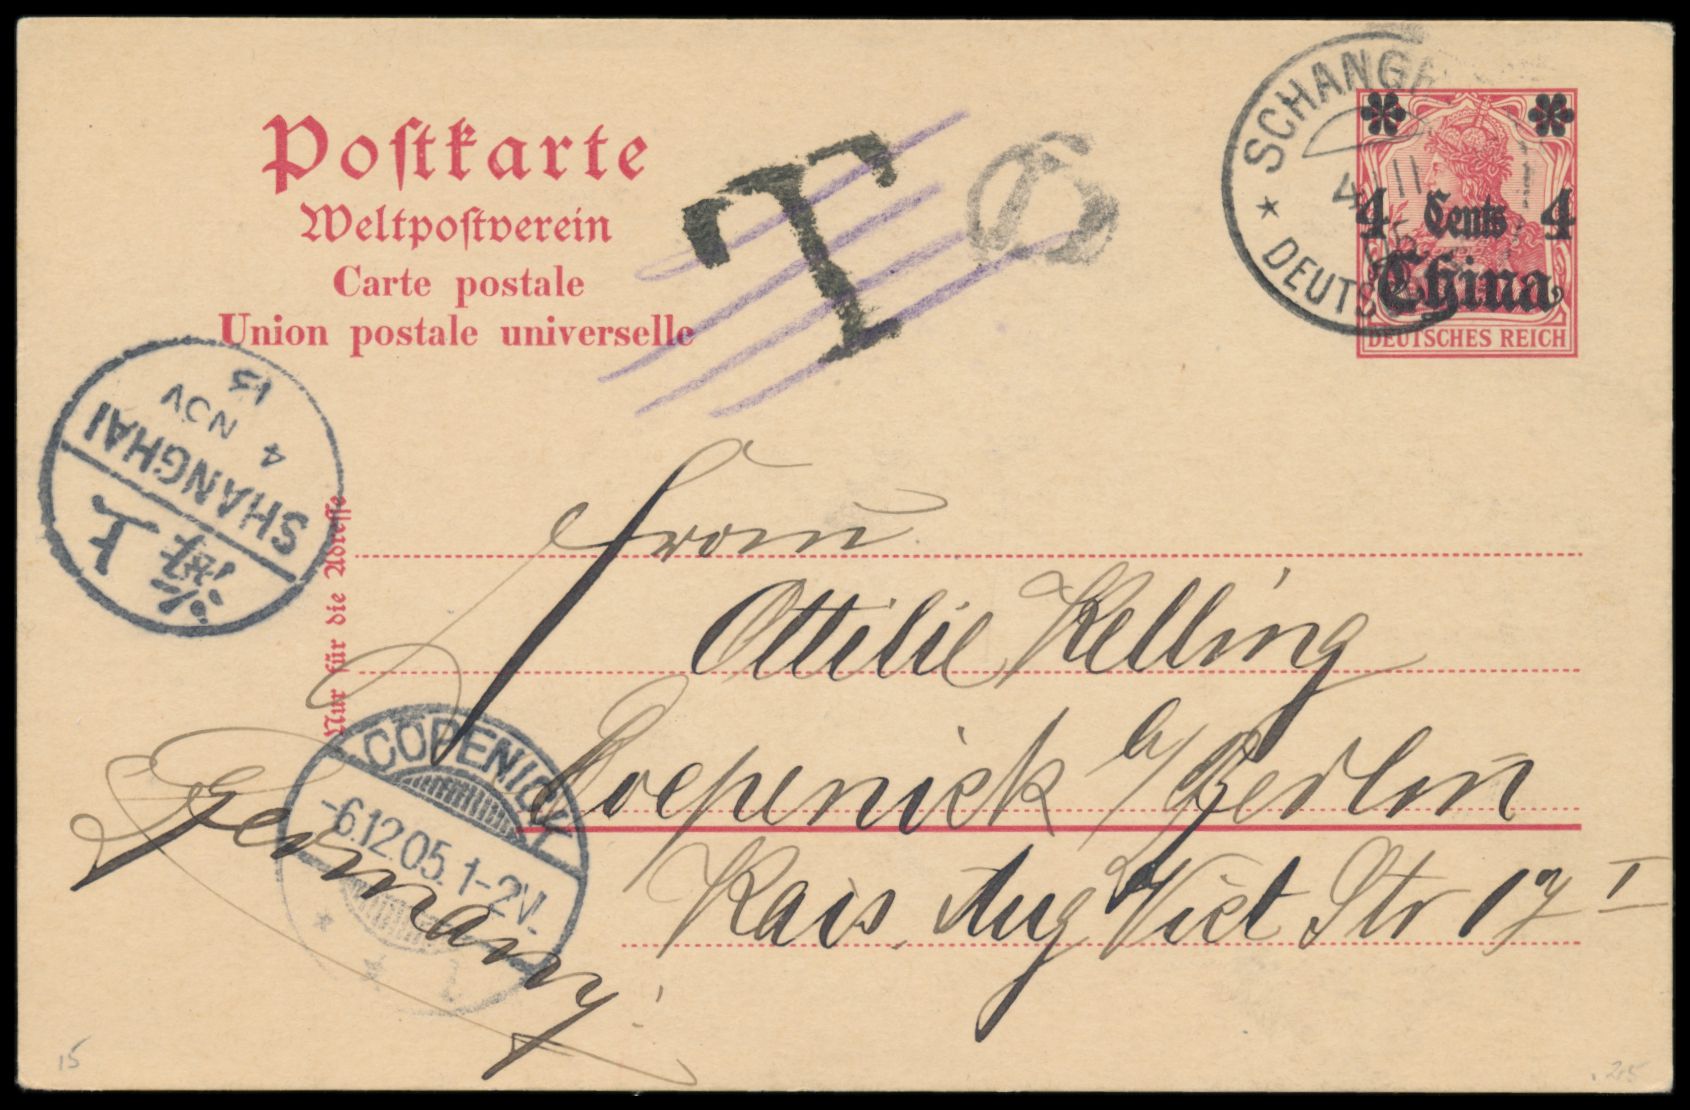 Postkarte
Weltpostverein
Carte postale
Union postale universelle
T
6
SCHANGH
4 11
* DEUTSC
4 Cents 4
China
DEUTSCHES REICH
上海
SHANGHAI
4 NOV
15
Nur für die Adresse
Frau
Ottilie Kelling
Coepenick b/ Berlin
Kais. Aug Vict Str 17 I
Germany
CÖPENICK
-6.12.05. 1-2V.
* 1.
15